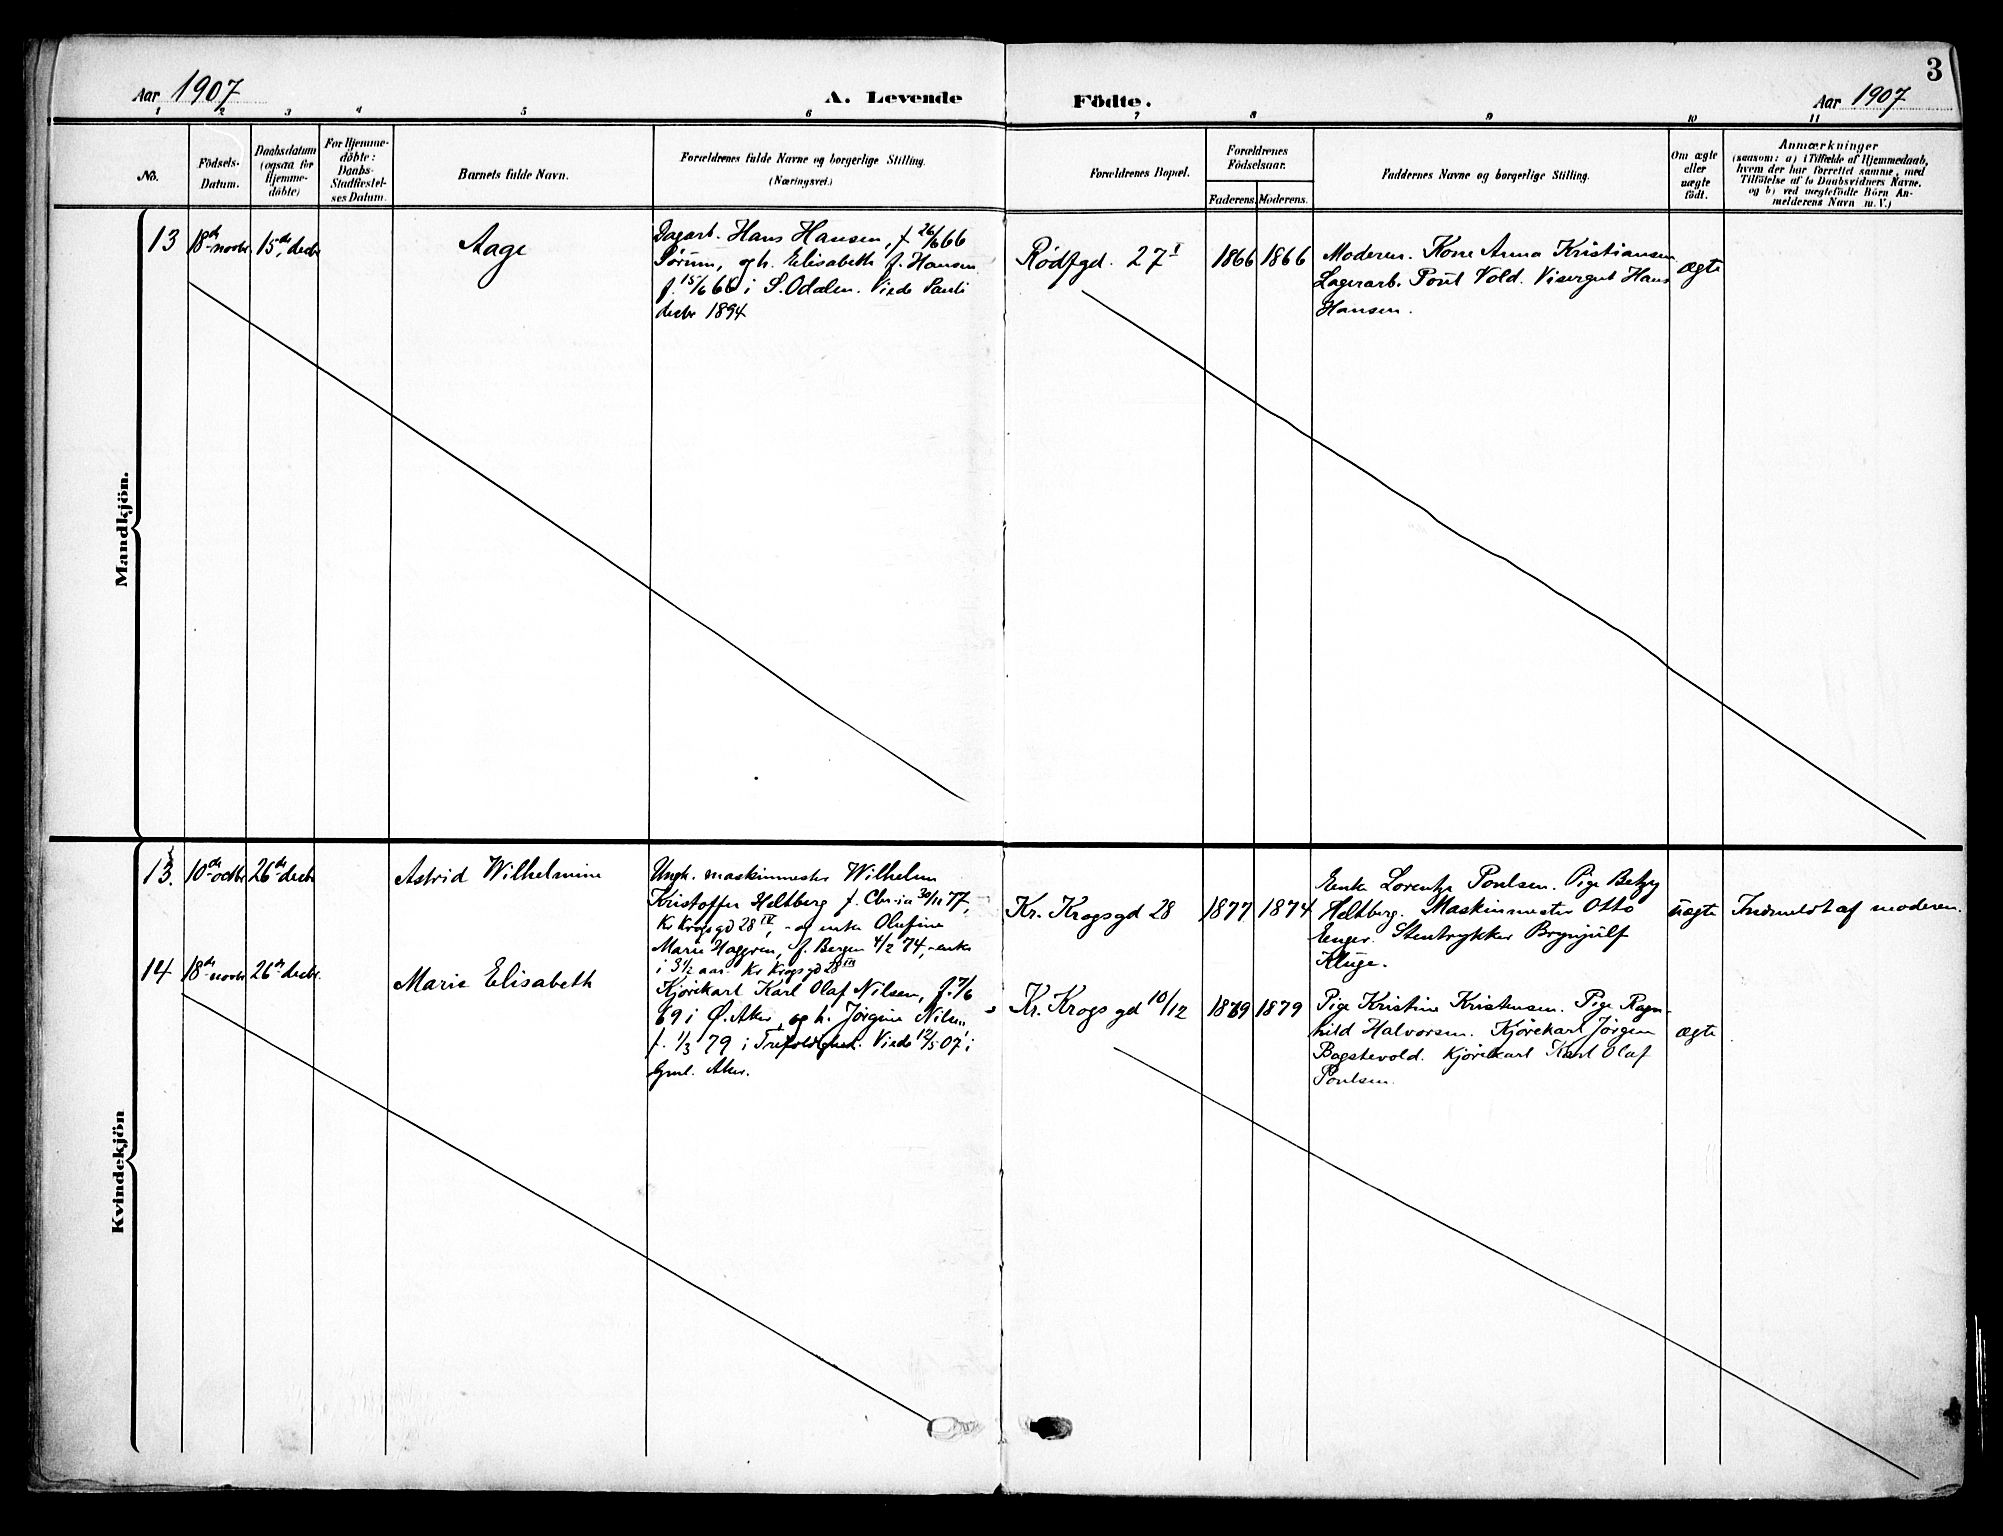 3
Aar 1907
A. Levende Födte.
Aar 1907
1 2 3 4 5 6 7 8 9 10 11
No.
Födsels-
Datum.
Daabsdatum
(ogsaa for
Hjemme-
döbte)
For Hjemme-
döbte:
Daabs-
Stadfæstel-
ses Datum.
Barnets fulde Navn.
Forældrenes fulde Navne og borgerlige Stilling.
(Næringsvei.)
Forældrenes Bopæl.
Forældrenes
Födselsaar.
Faderens. Moderens.
Faddernes Navne og borgerlige Stilling.
Om ægte
eller
uægte
født.
Anmærkninger
(saasom: a) i Tilfælde af Hjemmedaab,
hvem der har forrettet samme, med
Tilföielse af to Daabsvidners Navne,
og b) ved uægtefödte Börn An-
melderens Navn m. V.)
Mandkjön.
13
18de novbr
15de decbr
Aage
Dagarb. Hans Hansen, f. 26/6 66
Sørum, og h. Elisabeth f. Hansen
f. 15/6 66 i S. Odalen. Viede
decbr 1894
Rødfgd. 27 I
1866
1866
Moderen. Kone Anna Kristiansen
Lagerarb. Vold. Visergut Hans
Hansen.
ægte
Kvindekjön
13.
10de octbr
26de decbr
Astrid Wilhelmine
Ungk. maskinmester Wilhelm
Kristoffer Heltberg f. Chr-ia 30/11 77,
Kr Krogsgd 28 IV, - og enke Olefine
Marie Haggren, f. Bergen 4/2 74, - enke
i 3 1/2 aar. Kr Krogsgd 28 III
Kr. Krogsgd 28
1877
1874
Enke Lorentze Poulsen. Pige Betzy
Heltberg. Maskinmester Otto
Enger. Stentrykker Brynjülf
Kluge.
uægte
Indmeldt af moderen.
14
18de novbr
26de decbr.
Marie Elisabeth
Kjørekarl Karl Olaf Nilsen, f. 7/6
69 i Ø. Aker, og h. Jørgine Nilsen
f. 1/3 79 i Trefoldighed. Viede 12/5 07 i
Gml. Aker.
Kr. Krogsgd 10/12
1869
1879
Pige Kristine Kristensen. Pige Ragn-
hild Halvorsen. Kjørekarl Jørgen
Bagstevold. Kjørekarl Karl Olaf
Poulsen.
ægte